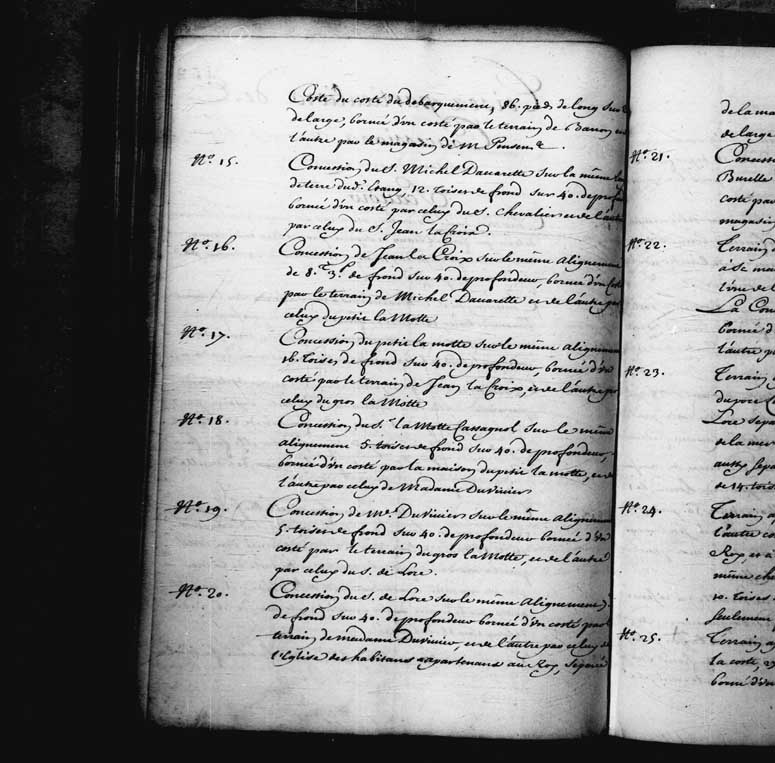 Costé du costé du debarquement, 86. pieds de long sur
de large, bornée d'vn costé par le terrain de Baron
l'autre par le magasin de M.
N.o 15. Concession du S. Michel Dauarette sur la même
de terre du d. 12. toises de frond sur 40. de profon
bornée d'vn costé par celuy du S. Chevalier et de l'autre
par celuy du S. Jean la Croix.
N.o 16. Concession de Jean La Croix sur le même alignement
de 8.T 3.P de frond sur 40. de profondeur, bornée d'vn Costé
par le terrain de Michel Dauarette et de l'autre par
celuy du petit la Motte
N.o 17. Concession du petit la motte sur le même alignement
16. toises de frond sur 40. de profondeur, bornée d'vn
costé par le terrain de Jean la Croix, et de l'autre par
celuy du gros la Motte
N.o 18. Concession du S.r la Motte Cassagnol sur le même
alignement 5. toises de frond sur 40. de profondeur,
bornée d'vn costé par la maison du petit la motte, et de
l'autre par celuy de Madame DuVivier
N.o 19. Concession de Me. DuVivier sur le même alignement
5. toises de frond sur 40. de profondeur bornée d'vn
costé par le terrain du gros la Motte, et de l'autre
par celuy du S. de Lore.
N.o 20. Concession du S. de Lore sur le même alignement
de frond sur 40. de profondeur bornée d'vn costé par le
terrain de madame DuVivier, et de l'autre par celuy de
l'Eglise des habitans apartenans au Roy, separé
de la ma
de large
N.o 21. Concess
Burelle
costé par
magasin
N.o 22. Terrain d
à Se ma
La Con
bornée d
l'autre p
N.o 23. Terrain
Lore sepa
de la mer
aussy sepa
de 14. tois
N.o 24. Terrain a
l'autre co
Roy, et a
même che
10. toises.
seulement
N.o 25. Terrain a
la costé, 2
bornée d'vn